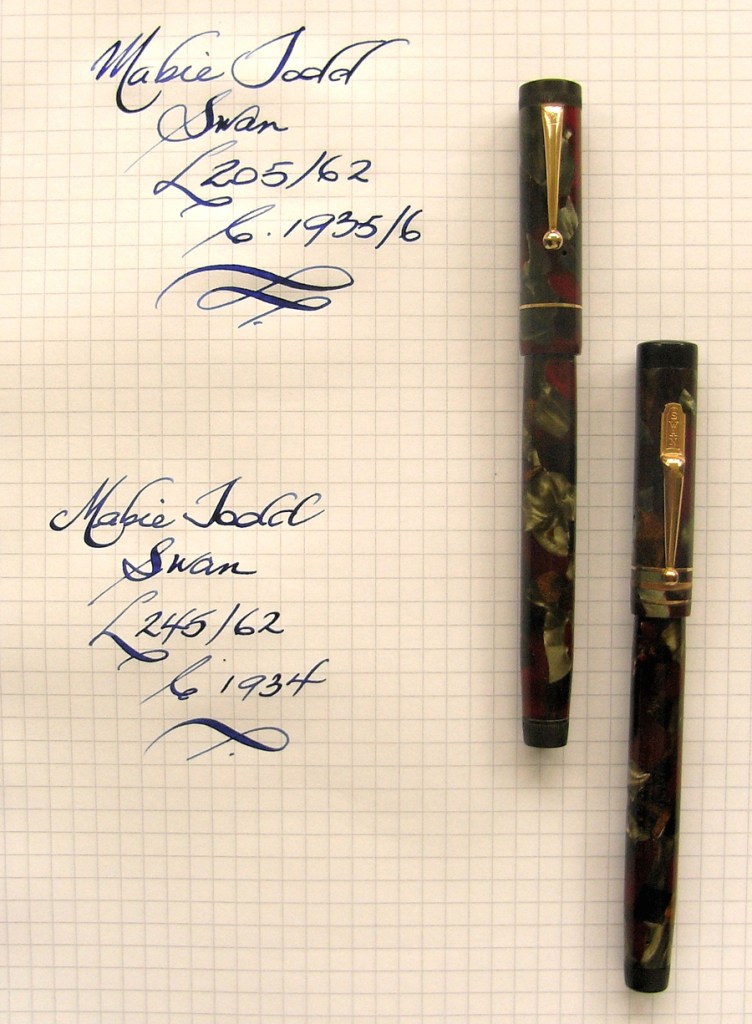 Mabie Todd
Swan
L205/62
C. 1935/6
SWAN
Mabie Todd
Swan
L245/62
C 1934